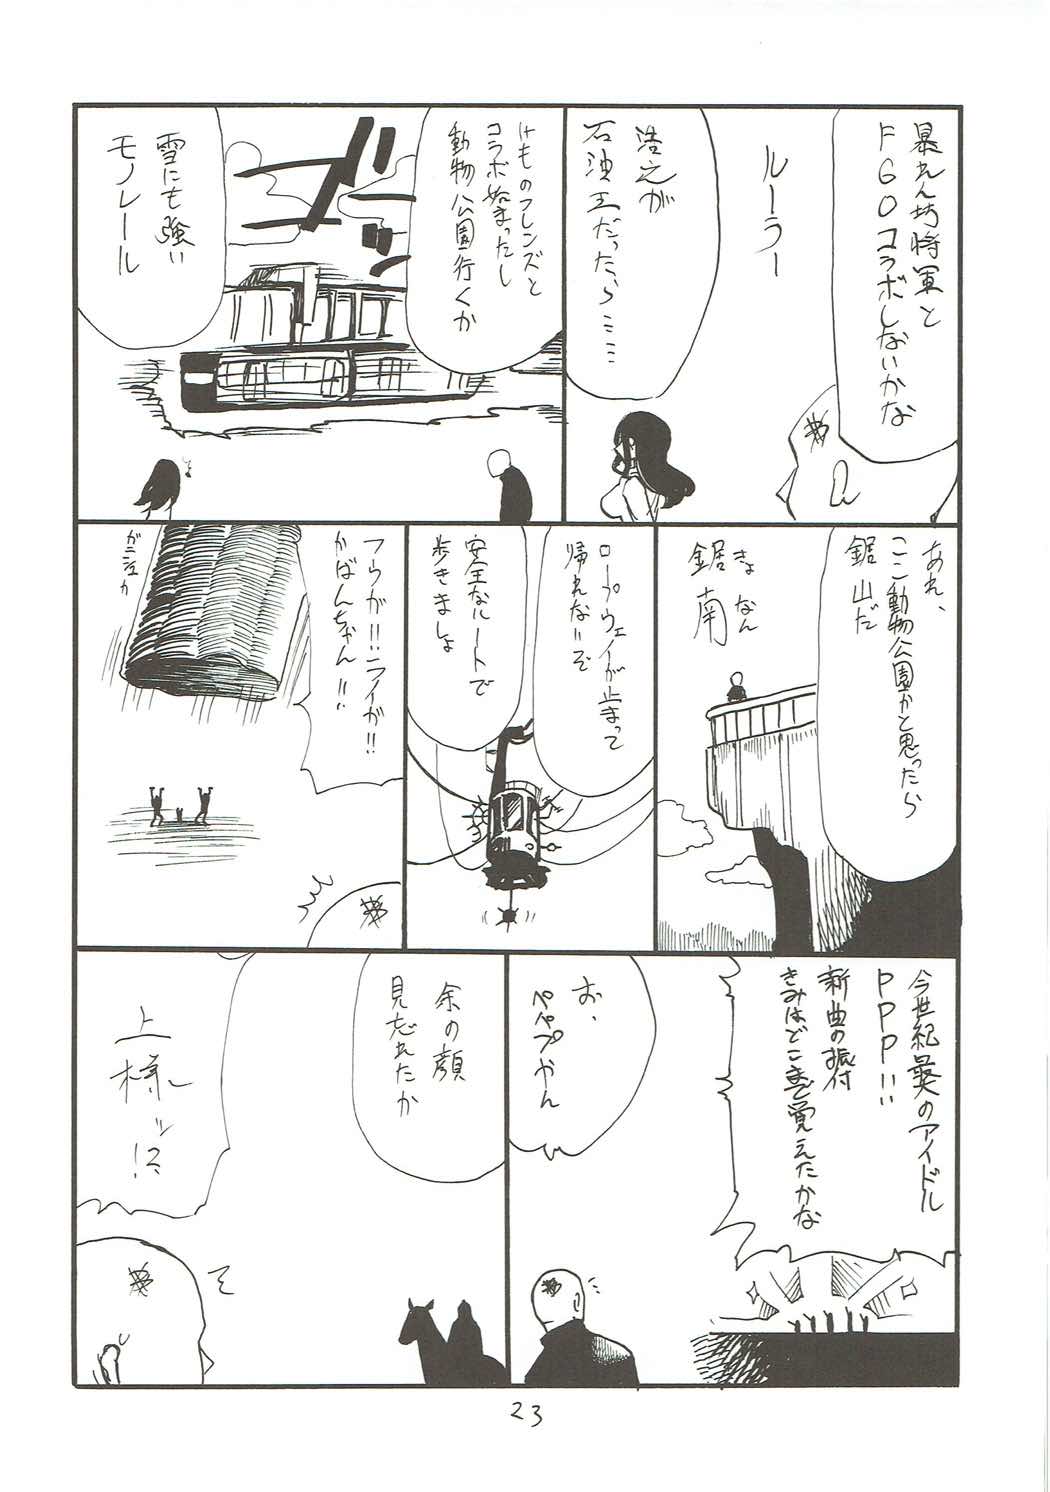 暴れん坊将軍と
FGOコラボしないかな
ルーラー
浩之が
石油王だったら……
けものフレンズと
コラボ始まったし
動物公園行くか
ドドン
雪にも強い
モノレール
あれ、
ここ動物公園かと思ったら
鋸山だ
きょなん
鋸南
ロープウェイが止まって
帰れないぞ
安全なルートで
歩きましょ
フウが!!ライが!!
かばんちゃん!!
今世紀最大のアイドル
PPP!!
新曲の振付
きみはどこまで覚えたかな
お、
ペパプやん
余の顔
見忘れたか
上様ッ!?
23